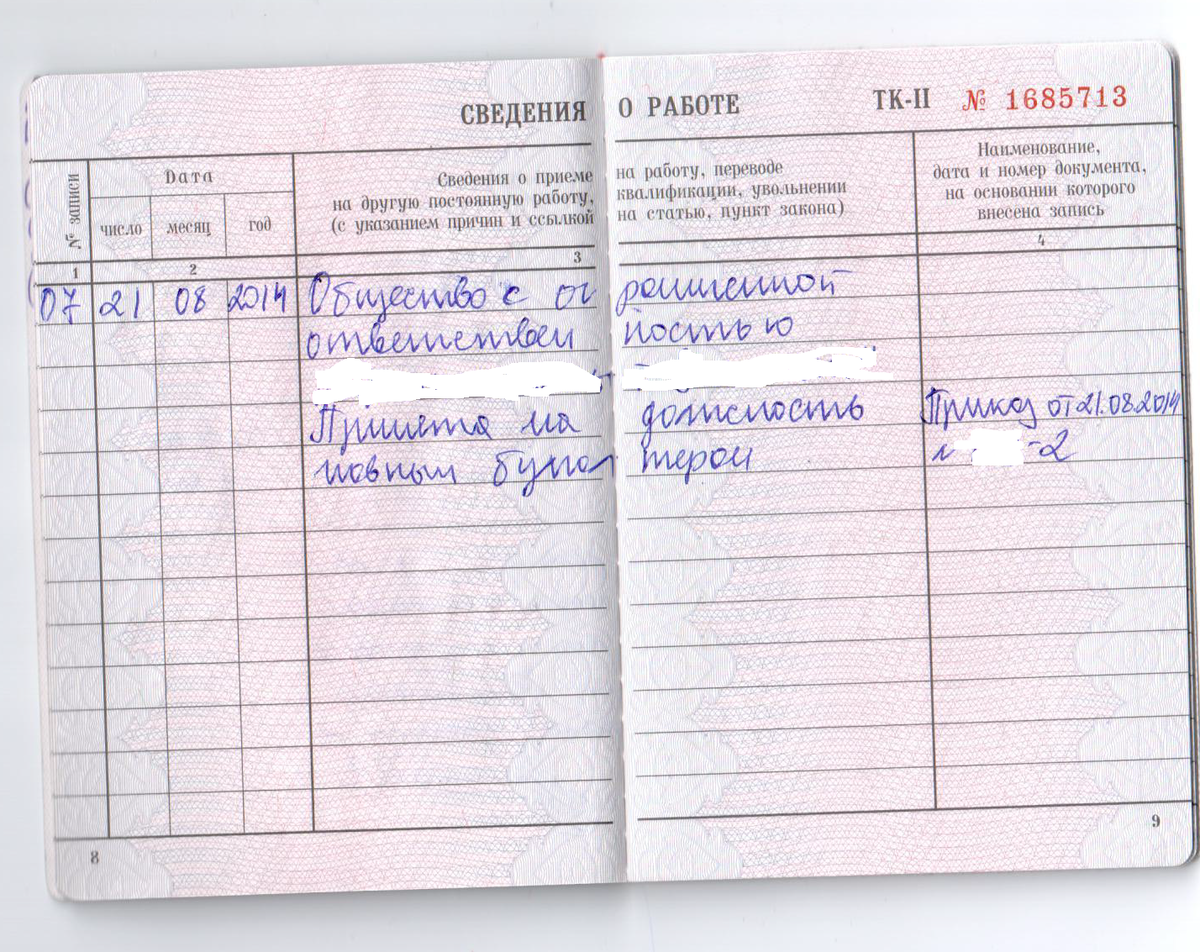 СВЕДЕНИЯ О РАБОТЕ ТК-II № 1685713
№ записи
Дата
число месяц год
Сведения о приеме на работу, переводе
на другую постоянную работу, квалификации, увольнении
(с указанием причин и ссылкой на статью, пункт закона)
Наименование,
дата и номер документа,
на основании которого
внесена запись
1 2 3 4
07 21 08 2014 Общество с ограниченной
ответственностью
Принята на должность Приказ от 21.08.2014
главным бухгалтером -2
8 9